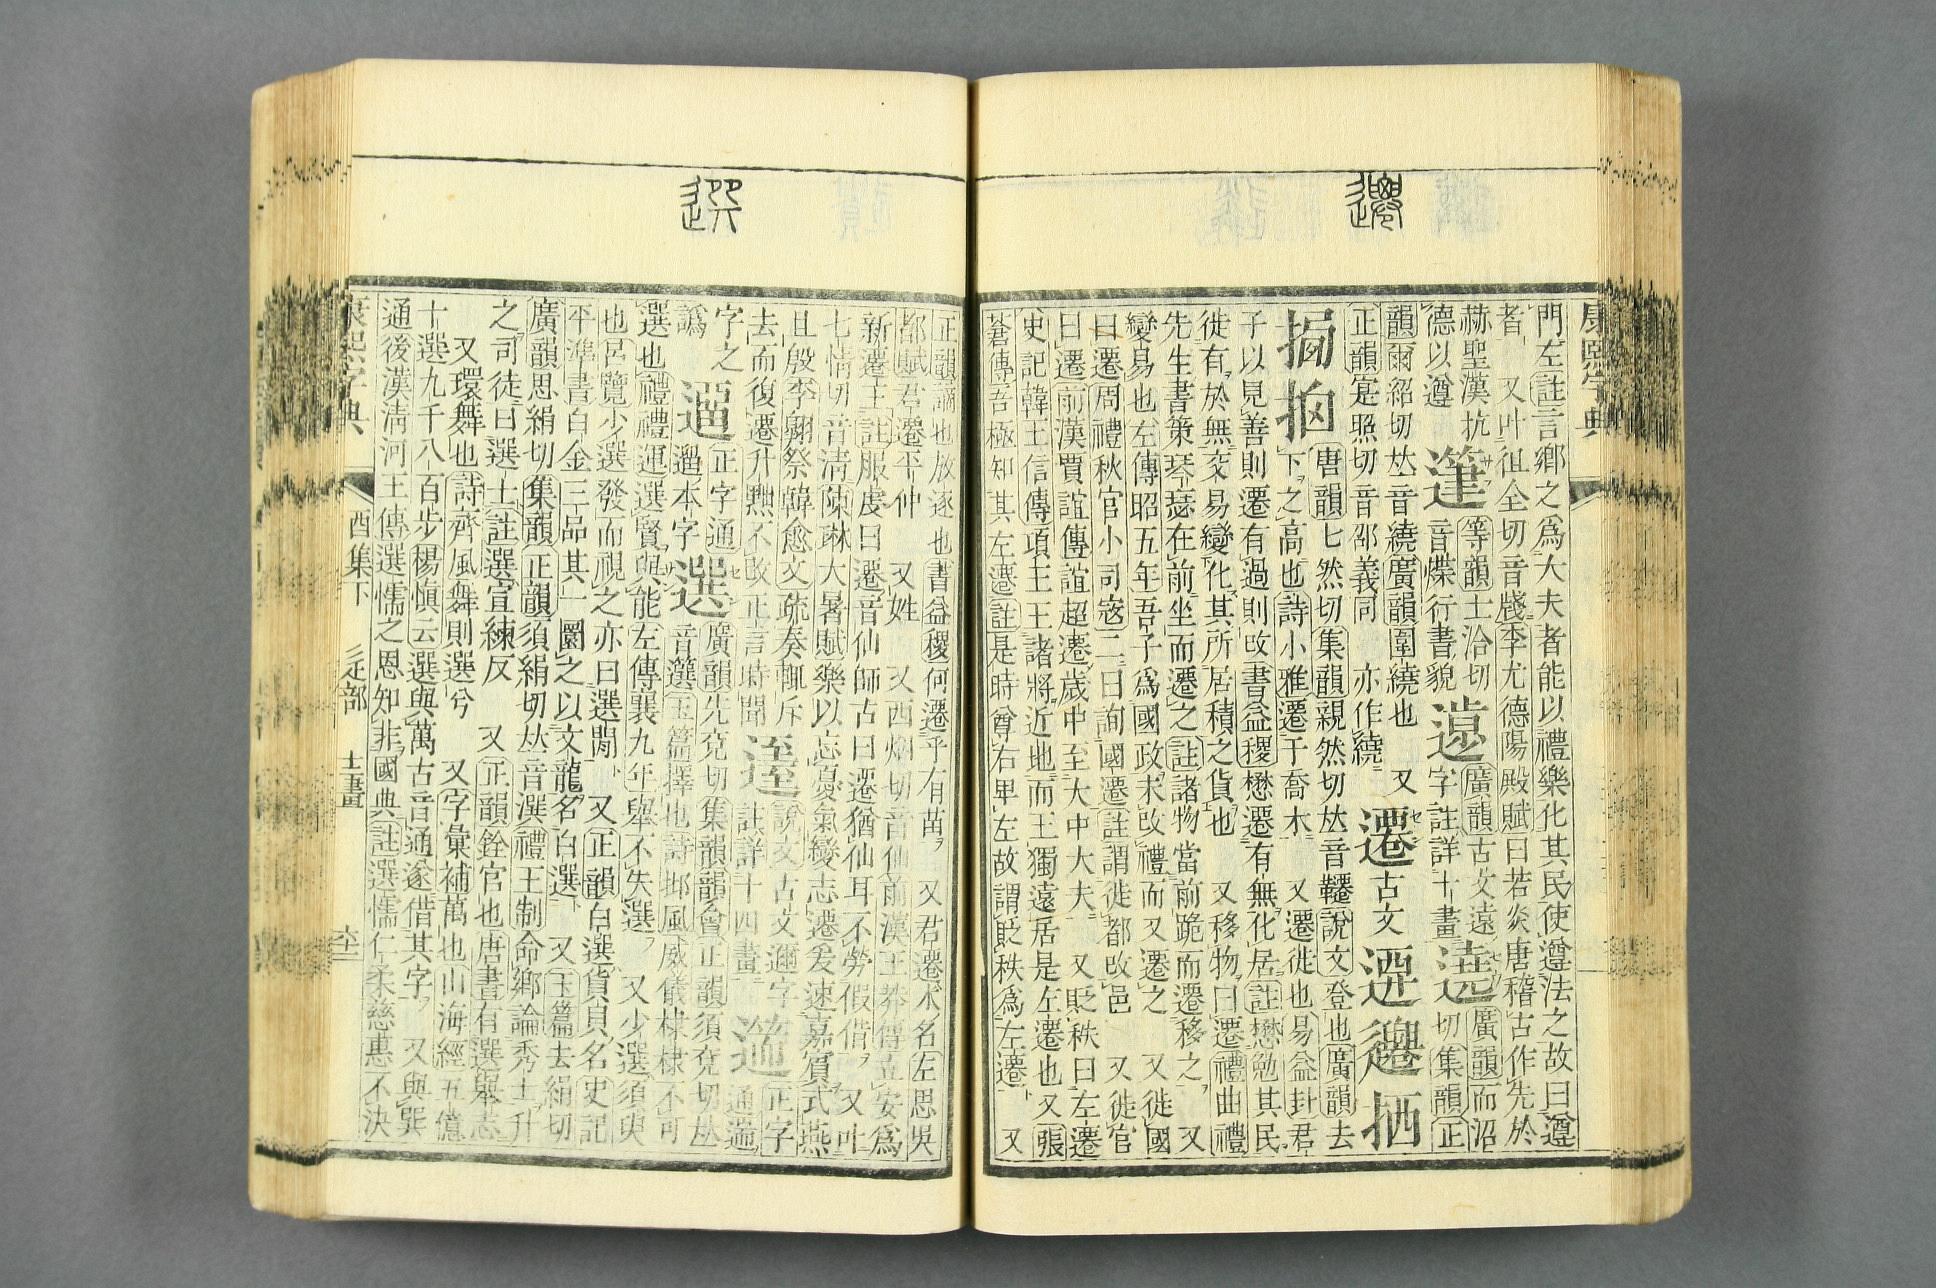 康熙字典
遷
門左註言鄉之爲大夫者能以禮樂化其民使遵法之故曰遵
者 又叶徂全切音牋李尤德陽殿賦曰若炎唐稽古作先於
赫聖漢抗
德以遵
等韻士洽切
音煠行書貌
廣韻古文遠
字註詳十畫
遶
廣韻而沼
切集韻正
韻爾紹切𠀤音繞廣韻圍繞也 又
正韻寔照切音邵義同 亦作繞
遷
古文
拪
唐韻七然切集韻親然切𠀤音韆說文登也廣韻去
下之高也詩小雅遷于喬木 又遷徙也易益卦君
子以見善則遷有過則改書益稷懋遷有無化居註懋勉其民
徙有於無交易變化其所居積之貨也 又移物曰遷禮曲禮
先生書策琴瑟在前坐而遷之註諸物當前跪而遷移之 又
變易也左傳昭五年吾子爲國政未改禮而又遷之 又徙國
曰遷周禮秋官小司寇二曰詢國遷註謂徙都改邑 又徙官
曰遷前漢賈誼傳誼超遷歲中至大中大夫 又貶秩曰左遷
史記韓王信傳項王王諸將近地而王獨遠居是左遷也又張
蒼傳吾極知其左遷註是時尊右卑左故謂貶秩爲左遷 又
選
正韻謫也放逐也書益稷何遷乎有苗 又君遷木名左思吳
都賦君遷平仲 又姓 又西烟切音仙前漢王莽傳立安爲
新遷王註服虔曰遷音仙師古曰遷猶仙耳不勞假借 又叶
七情切音淸陳琳大暑賦樂以忘憂氣變志遷爰速嘉賓式燕
且殷李翺祭韓愈文疏奏輒斥
去而復遷升黜不改正言時聞
說文古文邇字
註詳十四畫
正字
通遹
字之
譌
正字通
遹本字
選
廣韻先兗切集韻韻會正韻須兗切𠀤
音𥳪玉篇擇也詩邶風威儀棣棣不可
選也禮禮運選賢與能左傳襄九年舉不失選 又少選須臾
也呂覽少選發而視之亦曰選閒 又正韻白選貨貝名史記
平準書白金三品其一圜之以文龍名白選 又玉篇去絹切
廣韻思絹切集韻正韻須絹切𠀤音潠禮王制命鄉論秀士升
之司徒曰選士註選宣練反 又正韻銓官也唐書有選舉志
又環舞也詩齊風舞則選兮 又字彙補萬也山海經五億
十選九千八百步楊愼云選與萬古音通遂借其字 又與巽
通後漢淸河王傳選懦之恩知非國典註選懦仁柔慈惠不決
康熙字典 酉集下 辵部 士畫